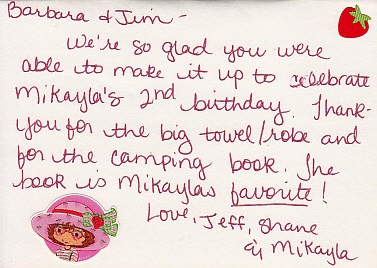 Barbara & Jim -
We're so glad you were
able to make it up to celebrate
Mikayla's 2nd birthday. Thank-
you for the big towel/robe and
for the camping book. The
book is Mikaylas favorite!
Love, Jeff, Shane
& Mikayla